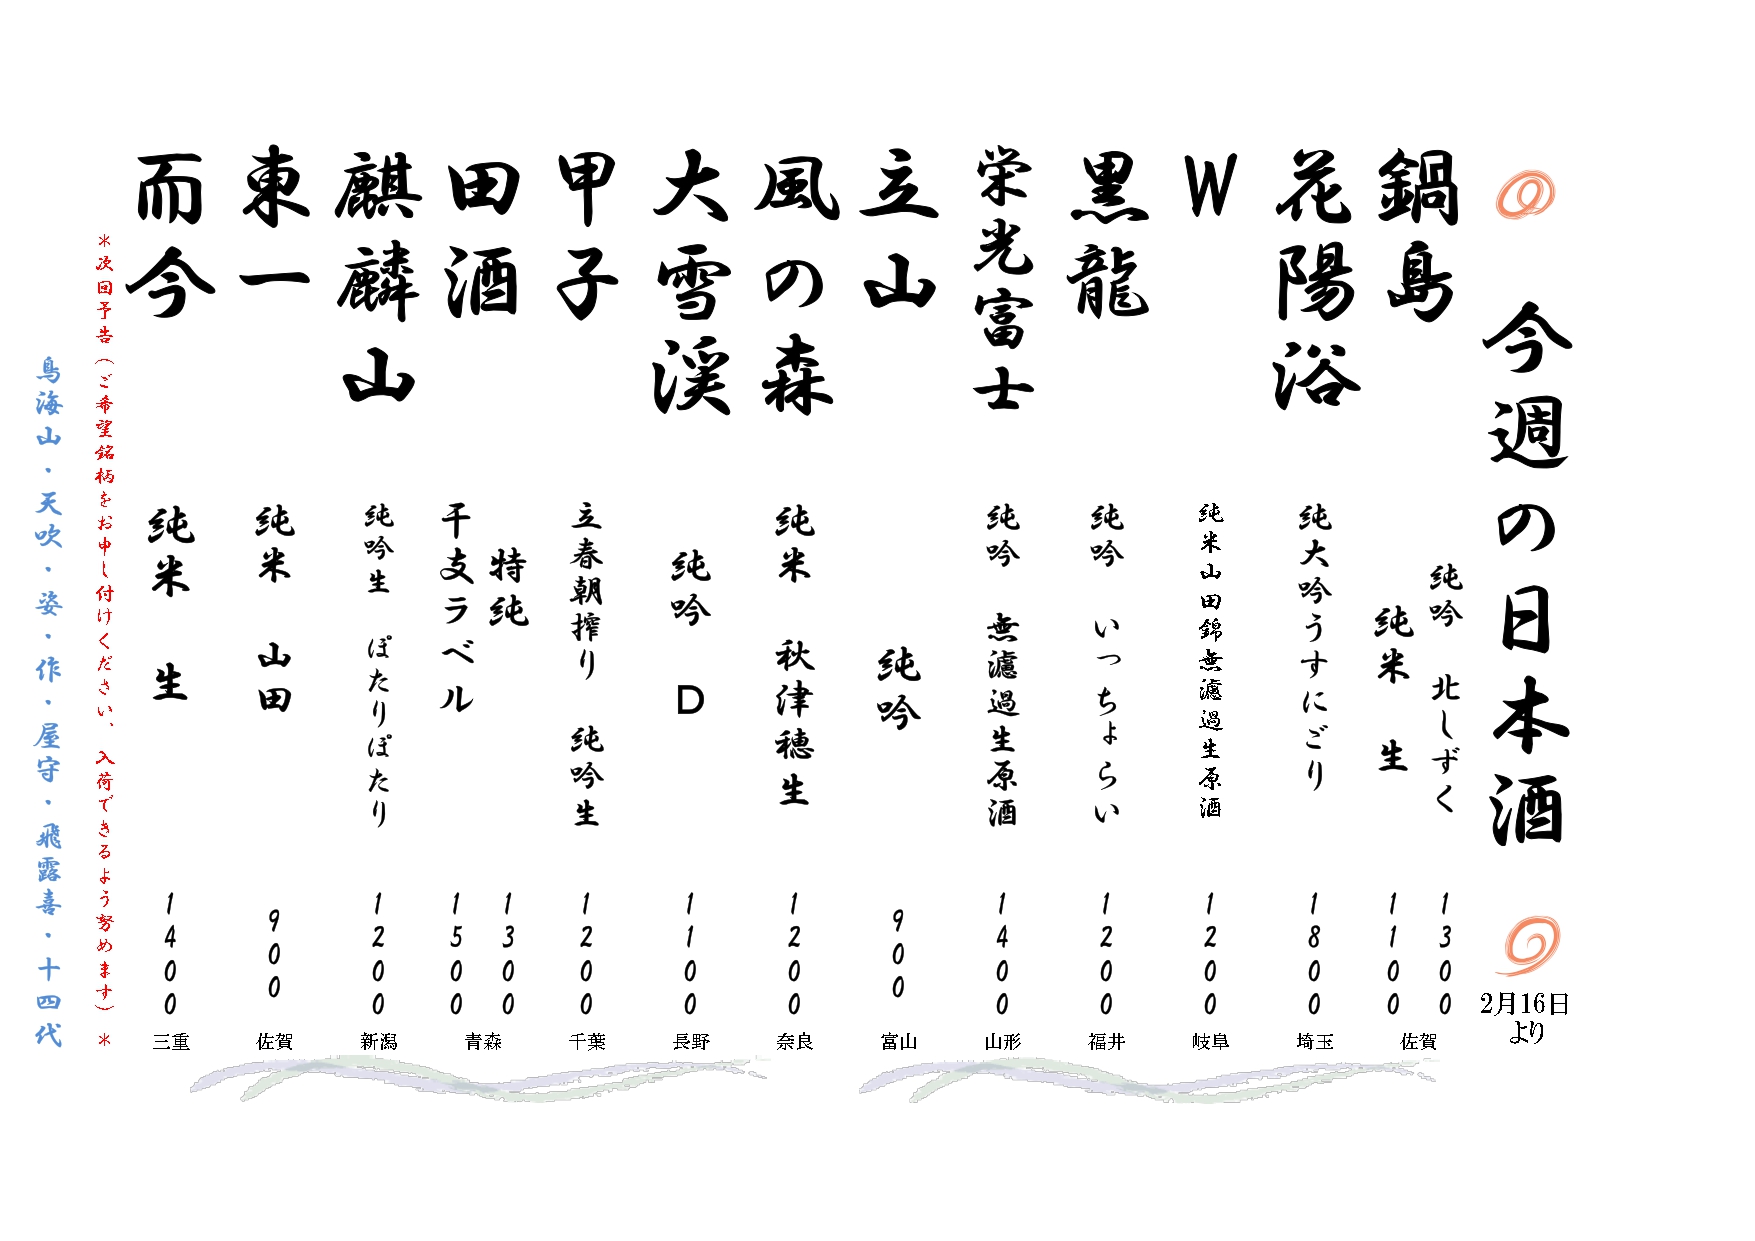 今週の日本酒
2月16日
より
鍋島
純吟 北しずく
1300
純米 生
1100
佐賀
花陽浴
純大吟うすにごり
1800
埼玉
W
純米山田錦無濾過生原酒
1200
岐阜
黒龍
純吟 いっちょらい
1200
福井
栄光富士
純吟 無濾過生原酒
1400
山形
立山
純吟
900
富山
風の森
純米 秋津穂生
1200
奈良
大雪渓
純吟 D
1100
長野
甲子
立春朝搾り 純吟生
1200
千葉
田酒
特純
1300
干支ラベル
1500
青森
麒麟山
純吟生 ぽたりぽたり
1200
新潟
東一
純米 山田
900
佐賀
而今
純米 生
1400
三重
＊次回予告(ご希望銘柄をお申し付けください、入荷できるよう努めます)＊
鳥海山・天吹・姿・作・屋守・飛露喜・十四代